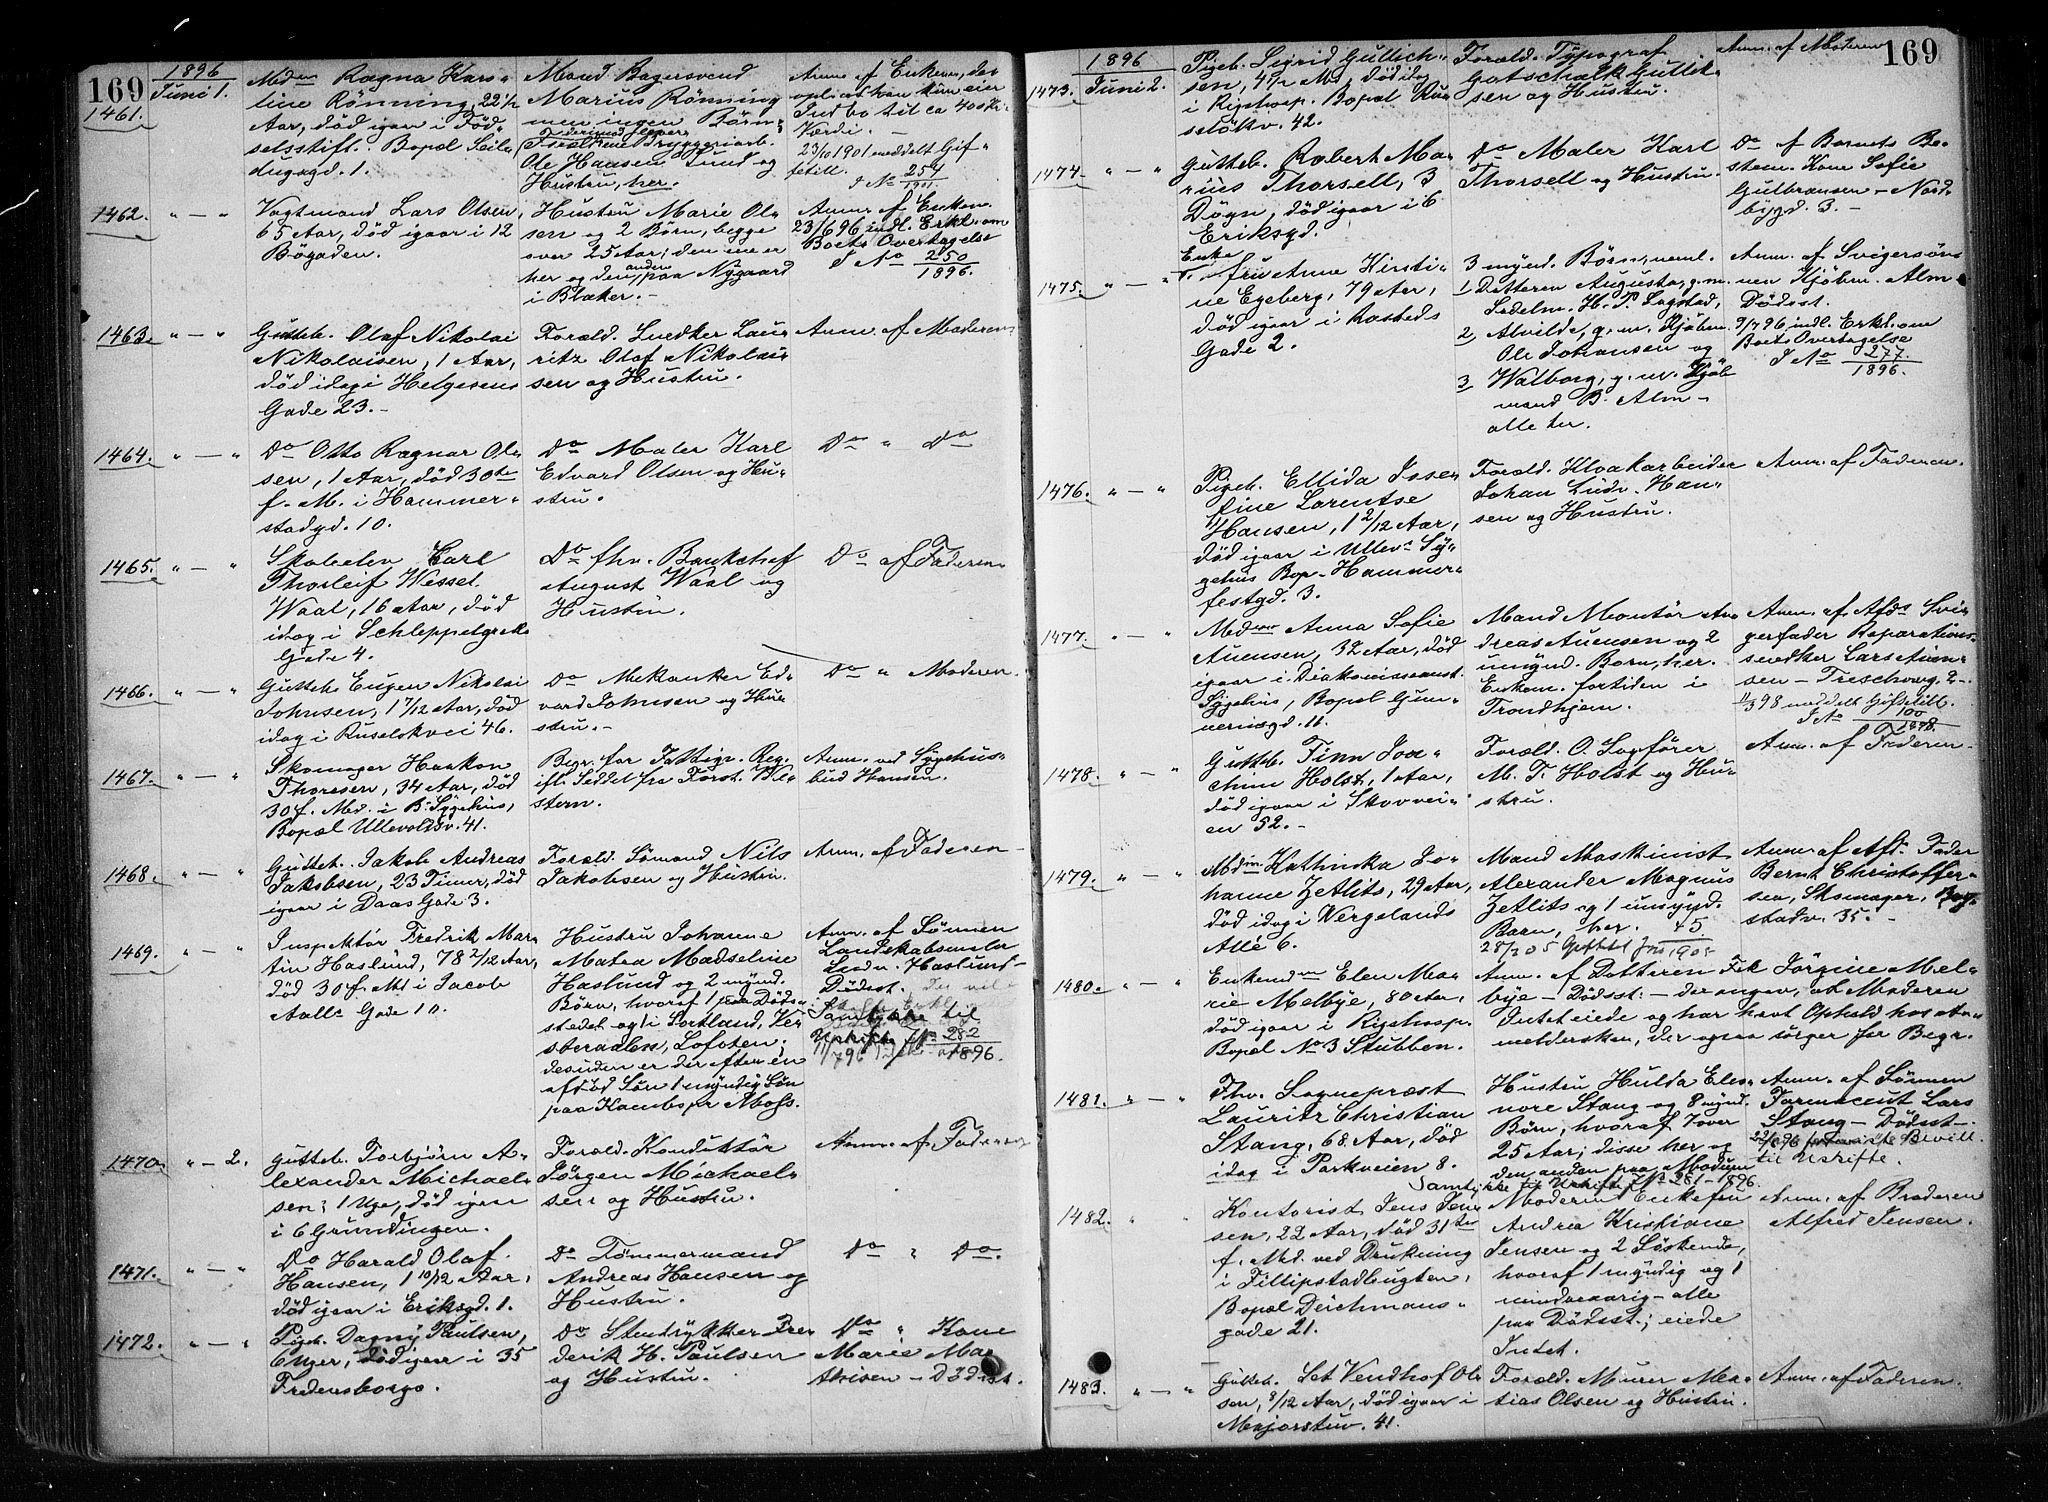 169
1896
Juni 1.
1461.
Mdm Ragna Kars-
line Rönning, 22 1/2
Aar, död igaar i Föd-
selsstift. Bopæl Seil-
dugsgd. 1.
Mand Bagersvend
Marius Rönning
men ingen Börn;
derimod lever
Forældrene Bryggeriarb.
Ole Hansen Lund og
Hustru, her.
Anm. af Enkem., der
oplyst han kun eier
Indbo til ca 400 Kr
Værdi. -
23/10 1901 meddelt Gif-
tetill.
J No 254/1901.
1462. " - "
Vognmand Lars Olsen,
65 Aar, död igaar i 12
Bögaden.
Hustru Marie Ol-
sen og 2 Börn, begge
over 25 Aar; den ene er
her og den anden paa Nygaard
i Blaker. -
Anm. af Enken.
23/6 96 indl. Erkl. om
Boets Overtagelse
J No 250/1896.
1463. " - "
Gutteb. Olaf Nikolai
Nikolaisen, 1 Aar,
död idag i Helgesens
Gade 23. -
Foræld. Snedker Lau-
ritz Olaf Nikolai-
sen og Hustru.
Anm. af Moderen
1464. " - "
Do Otto Ragnar Ol-
sen, 1 Aar, död 30te
f. M. i Hammer-
stadgd. 10.
Do Maler Karl
Edvard Olsen og Hu-
stru.
Do " Do
1465. " - "
Skoleelev Carl
Thorleif Wessel
Waal, 16 Aar, död
idag i Schleppegrels
Gade 4.
Do fhv. Bankchef
August Waal og
Hustru.
Do af Faderen
1466. " - "
Gutteb. Eugen Nikolai
Johnsen, 1 7/12 Aar, död
idag i Ruselökvei 46.
Do Mekaniker Ed-
vard Johnsen og Hu-
stru. -
Do " Moderen.
1467. " - "
Skomager Haakon
Thoresen, 34 Aar, död
30 f. Md. i B. Sygehus,
Bopæl Ullevoldsv. 41.
Begr. for Fattigv. Reg.
ifl. Seddel fra Forst. Ve-
stern.
Anm. ved Sygehus-
bud Hansen.
1468. " - "
Gutteb. Jakob Andreas
Jakobsen, 23 Timer, död
igaar i Daas Gade 3.
Foræld. Sömand Nils
Jakobsen og Hustru.
Anm. af Faderen
1469. " - "
Inspektör Fredrik Mar-
tin Haslund, 78 2/12 Aar,
död 30 f. Md. i Jacob
Aalls Gade 10.
Hustru Johanne
Matea Madseline
Haslund og 2 mynd.
Börn, hvoraf 1 paa Döds-
stedet og i Sortland, Ve-
steraalen, Lofoten;
desuden er der efter en
afdöd Sön 1 myndig Sön
paa Kambo pr Moss.
Anm. af Sönnen
Landskabsmaler
Ludv. Haslund -
Dödsst.
Samtykke til
Uskifte J No 282/1896.
11/7 96
1470. " - 2.
Gutteb. Torbjörn A-
lexander Michael-
sen, 1 Uge, död igaar
i 6 Gründingen.
Foræld. Konduktör
Jörgen Michael-
sen og Hustru.
Anm. af Faderen
1471. " - "
Do Harald Olaf
Hansen, 1 10/12 Aar,
död igaar i Eriksgd. 1.
Do Tömmermand
Andreas Hansen og
Hustru.
Do " Do
1472. " - "
Pigeb. Dagny Paulsen,
Uger, död igaar i 35
Fredensborgv.
Do Stentrykker Fre-
derik H. Paulsen
og Hustru.
Do " Kone
Marie Ma-
thisen - Dödsst.
169
1896
1473. Juni 2.
Pigeb. Sigrid Gullich-
sen, 4 1/2 Md, död idag
i Rigshosp. Bopæl Ru-
selökv. 42.
Foræld. Typograf
Gotschalk Gullik-
sen og Hustru.
Anm. af Moderen
1474. " - "
Gutteb. Robert Ma-
rius Thorsell, 3
Dögn, död igaar i 6
Eriksgd.
Do Maler Karl
Thorsell og Hustru.
Do af Barnets Be-
stem. Kone Sofie
Gulbransen - Nord-
bygd. 3. -
1475. " - "
Enke
fru Anne Kirsti-
ne Egeberg, 79 Aar,
död igaar i Rosteds
Gade 2.
3 mynd. Börn, neml.
1 Datteren Augusta, g. m.
Sadelm. H. P. Logstad,
2 Alvilde, g. m. Kjöbm.
Ole Johansen og
3 Walborg, g. m. Kjöb-
mand B. Alm -
alle her.
Anm. af Svigersön-
nen Kjöbm. Alm
Dödsst.
9/7 96 indl. Erkl. om
Boets Overtagelse
J No 277/1896.
1476. " - "
Pigeb. Ellida Jose-
fine Lorentse
Hansen, 1 2/12 Aar,
död igaar i Ullev. Sy-
gehus Bop. Hammer-
festgd. 3.
Foræld. Kloakarbeider
Johan Ludv. Han-
sen og Hustru.
Anm. af Faderen.
1477. " - "
Mdm Anna Sofie
Auensen, 32 Aar, död
igaar i Diakonisseanst.
Sygehus, Bopæl Gun-
neriusgd. 11.
Mand Montör An-
dreas Auensen og 2
umynd. Børn, her.
Enkem. fortiden i
Trondhjem.
Anm. af Afds Svi-
gerfader Reparations-
snedker Lars Auen-
sen - Treschowg. 2 -
11/3 98 meddelt Giftetill.
J No 100/1898.
1478. " - "
Gutteb. Finn Joa-
chim Holst, 1 Aar,
död igaar i Skovvei-
en 52. -
Foræld. O. Sagförer
M. T. Holst og Hu-
stru.
Anm. af Faderen -
1479. " - "
Mdm Kathinka Jo-
hanne Zetlitz, 29 Aar,
död idag i Vergelands
Alle 6.
Mand Maskinist
Alexander Magnus
Zetlitz og 1 umynd.
Barn, her.
28/2 05 Giftetil. Jno 45/1905
Anm. af Afd. Fader
Bernt Christoffer-
sen, Skomager, Bog-
stadv. 35. -
1480. " - "
Enkemdm Elen Ma-
rie Melbye, 80 Aar,
död igaar i Rigshosp.
Bopæl No 3 Stubben.
Anm. af Datteren Frk Jörgine Mel-
bye - Dödsst: - der angav, at Moderen
Intet eiede og har havt Ophold hos An-
meldersken, der ogsaa sörger for Begr.
1481. " - "
Fhv. Sognepræst
Lauritz Christian
Stang, 68 Aar, död
idag i Parkveien 8.
Hustru Hulda Eleo-
nore Stang og 8 mynd.
Börn, hvoraf 7 over
25 Aar; disse her og
den anden paa Modum
Samtykke til Uskifte J No 281-1896.
Anm. af Sönnen
Farmaceut Lars
Stang - Dödsst -
22/6 96 foreviste Bevill.
til Uskifte.
1482. " "
Kontorist Jens Jen-
sen, 22 Aar, död 31te
f. Md. ved Drukning
i Fillipstadbugten,
Bopæl Deichmans-
gade 21.
Moderen Enkefru
Andrea Kristiane
Jensen og 2 Söskende,
hvoraf 1 myndig og 1
mindreaarig - alle
paa Dödsst.; eiede
Intet.
Anm. af Broderen
Alfred Jensen.
1483. " - "
Gutteb. Set Vendhof Ol-
sen, 8/12 Aar, död igaar i
Majorstuv. 41.
Foræld. Murer Ma-
tias Olsen og Hustru.
Anm. af Faderen.